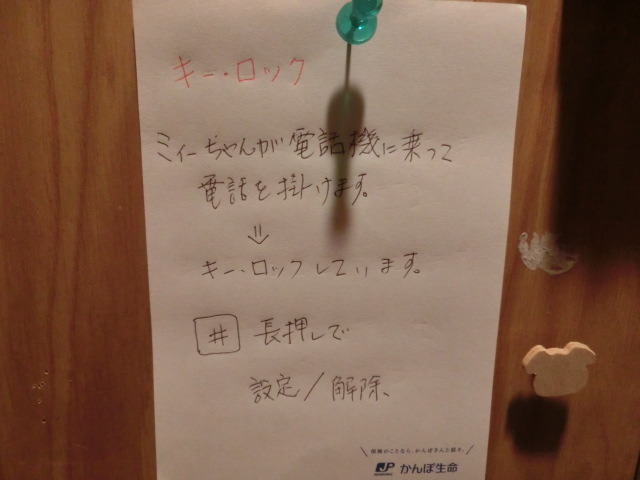 キー・ロック
ミィーちゃんが電話機に乗って
電話を掛けます。
⇓
キー・ロックしています。
# 長押しで
設定/解除、
保険のことなら、かんぽさんと話そ。
JP かんぽ生命